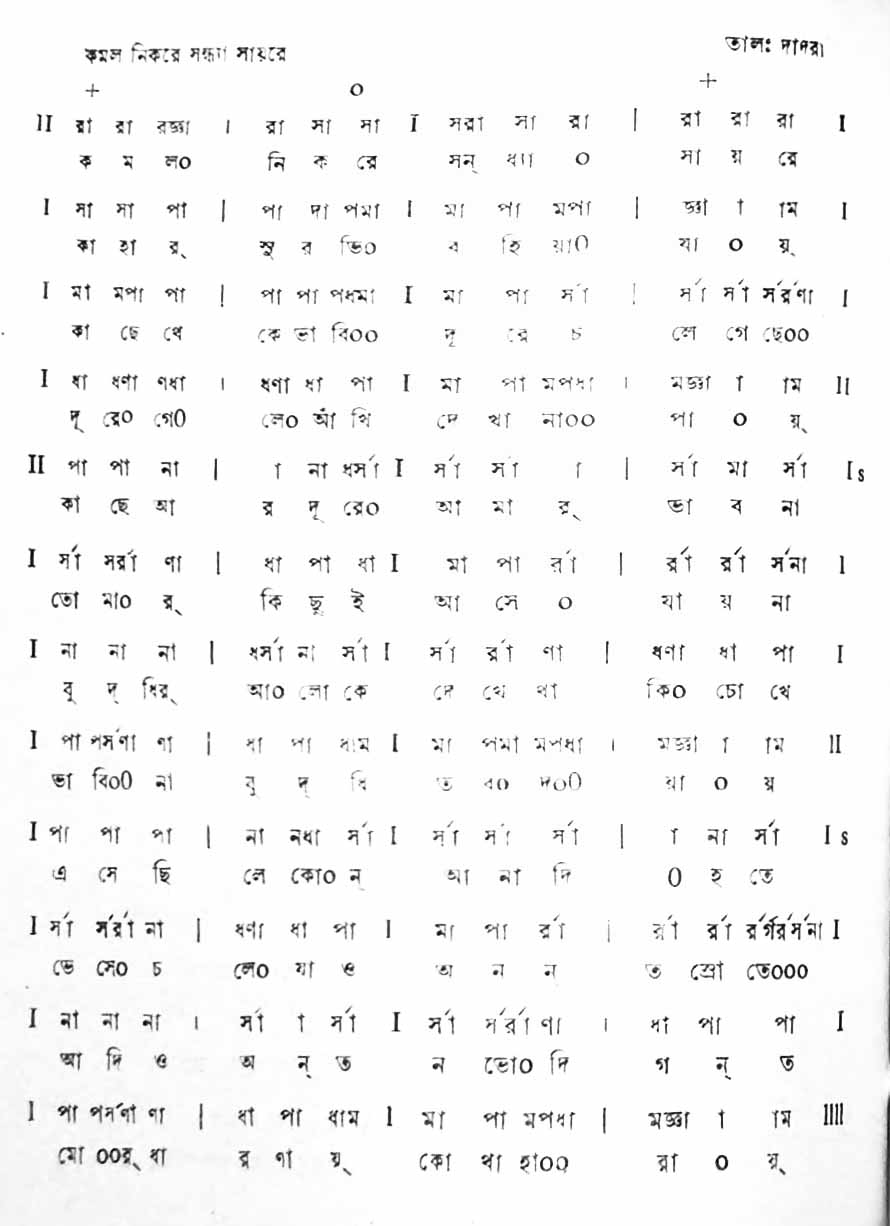 কমল নিকরে সন্ধ্যা সায়রে
তালঃ দাদরা
+ o +
II রা রা রজ্ঞা । রা সা সা I সরা সা রা | রা রা রা I
ক ম ল০ নি ক রে সন্ ধ্যা ০ সা য় রে
I সা সা পা | পা দা পমা I মা পা মপা | জ্ঞা া াম I
কা হা র্ সু র ভি০ ব হি য়া০ যা ০ য়্
I মা মপা পা | পা পা পধমা I মা পা র্সা | র্সা র্সা র্সর্রণা I
কা ছে থে কে ভা বি০০ দূ রে চ লে গে ছে০০
I ধা ধণা ণধা । ধণা ধা পা I মা পা মপধা । মজ্ঞা া াম II
দূ রে০ গে০ লে০ আঁ খি দে খা না০০ পা ০ য়্
II পা পা না | া না ধর্সা I র্সা র্সা া | র্সা মা র্সা Is
কা ছে আ র দূ রে০ আ মা র্ ভা ব না
I র্সা সর্রা ণা | ধা পা ধা I মা পা র্রা | র্রা র্রা র্সনা I
তো মা০ র্ কি ছু ই আ সে ০ যা য় না
I না না না | ধর্সা না র্সা I র্সা র্রা ণা | ধণা ধা পা I
বু দ্ ধির্ আ০ লো কে দে খে থা কি০ চো খে
I পা পর্সণা ণা | ধা পা ধাম I মা পমা মপধা । মজ্ঞা া াম II
ভা বি০০ না বু দ্ ধি ত ব০ দ০০ যা ০ য়
I পা পা পা | না নধা র্সা I র্সা র্সা র্সা | া না র্সা I s
এ সে ছি লে কো০ ন্ আ না দি ০ হ তে
I র্সা র্সর্রা না | ধণা ধা পা I মা পা র্রা | র্রা র্রা র্রর্গর্রর্সনা I
ভে সে০ চ লে০ যা ও অ ন ন্ ত স্রো তে০০০
I না না না । র্সা া র্সা I র্সা র্সর্রা ণা । ধা পা পা I
আ দি ও অ ন্ ত ন ভো০ দি গ ন্ ত
I পা পর্সণা ণা | ধা পা ধাম I মা পা মপধা | মজ্ঞা া াম IIII
মো ০০র্ ধা র ণা য়্ কো থা হা০০ রা ০ য়্